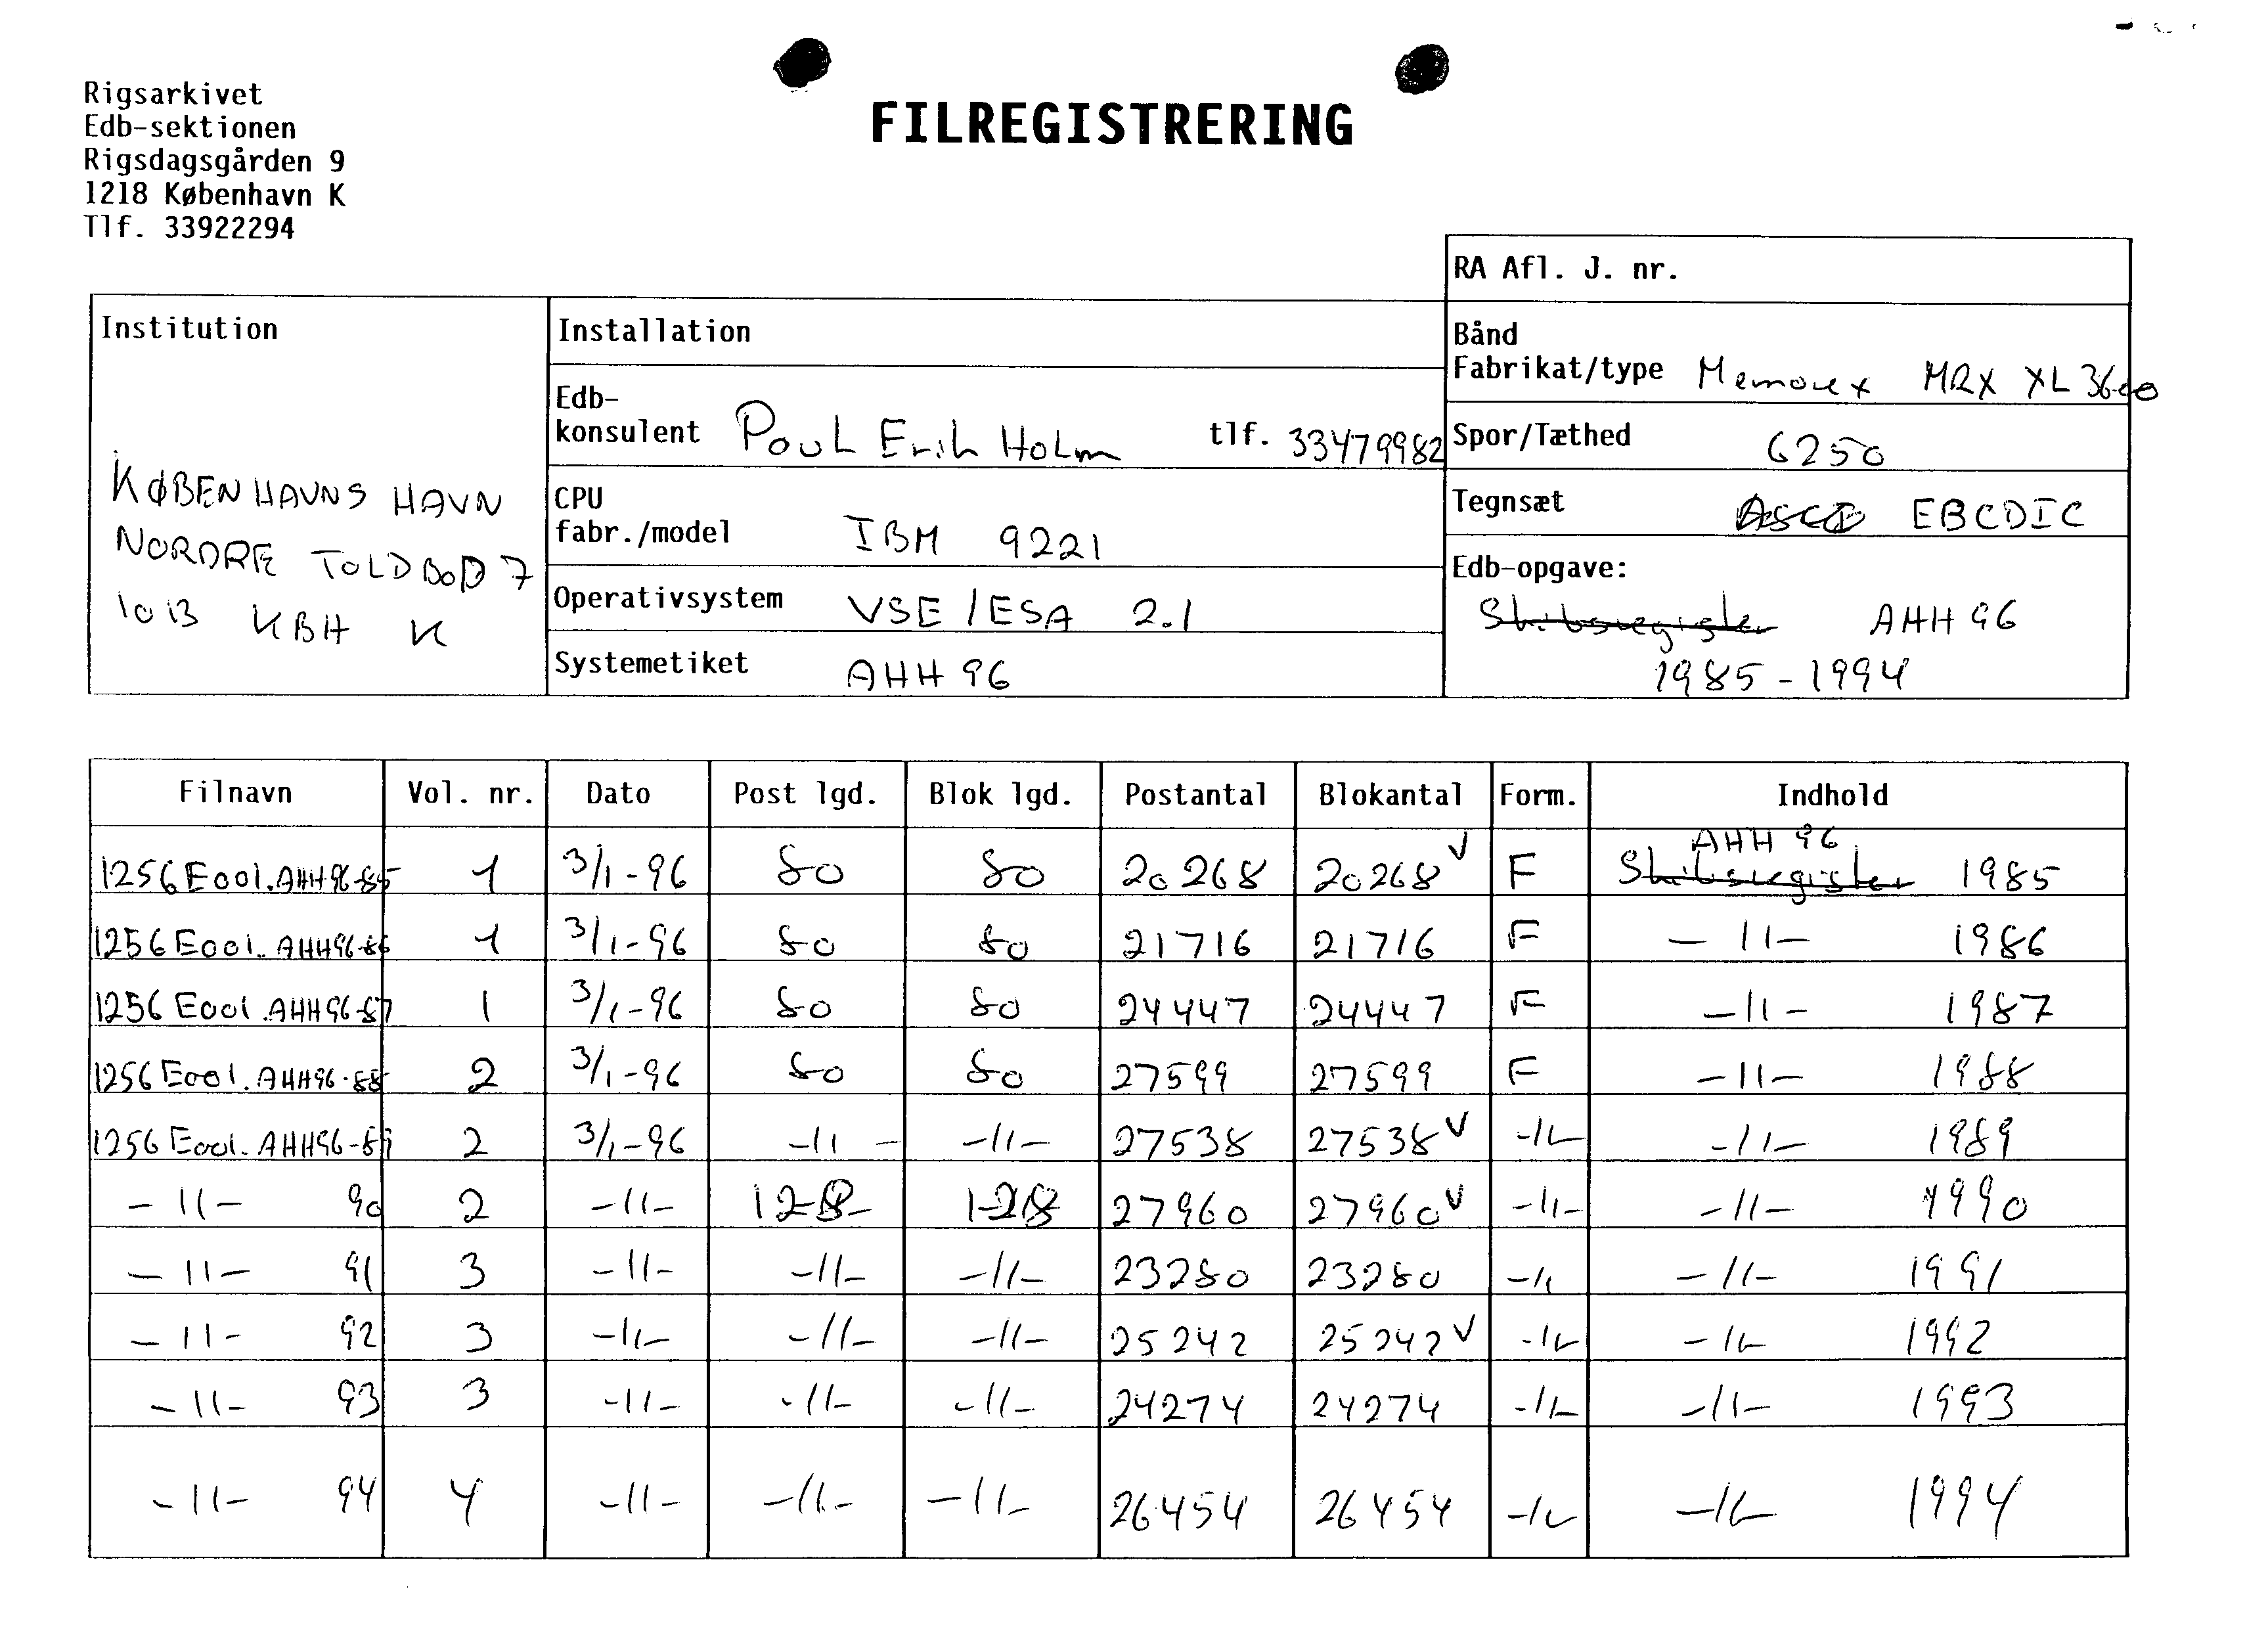 Rigsarkivet
Edb-sektionen
Rigsdagsgården 9
1218 København K
Tlf. 33922294
FILREGISTRERING
RA Afl. J. nr.
Institution
KØBENHAVNS HAVN
NORDRE TOLDBOD 7
1013 KBH K
Installation
Edb-
konsulent Poul Erik Holm tlf. 33479982
CPU
fabr./model IBM 9221
Operativsystem VSE/ESA 2.1
Systemetiket AHH 96
Bånd
Fabrikat/type Memorex MRX XL 3600
Spor/Tæthed 6250
Tegnsæt ASCII EBCDIC
Edb-opgave:
Skibsregister AHH 96
1985-1994
Filnavn Vol. nr. Dato Post lgd. Blok lgd. Postantal Blokantal Form. Indhold
AHH 96
1256E001.AHH96-85 1 3/1-96 80 80 20268 20268 V F Skibsregister 1985
1256E001.AHH96-86 1 3/1-96 80 80 21716 21716 F -11- 1986
1256E001.AHH96-87 1 3/1-96 80 80 24447 24447 F -11- 1987
1256E001.AHH96-88 2 3/1-96 80 80 27599 27599 F -11- 1988
1256E001.AHH96-89 2 3/1-96 -11- -11- 27538 27538 V -11- -11- 1989
-11- 90 2 -11- 128 128 27960 27960 V -11- -11- 1990
-11- 91 3 -11- -11- -11- 23280 23280 -11- -11- 1991
-11- 92 3 -11- -11- -11- 25242 25242 V -11- -11- 1992
-11- 93 3 -11- -11- -11- 24274 24274 -11- -11- 1993
-11- 94 4 -11- -11- -11- 26454 26454 -11- -11- 1994